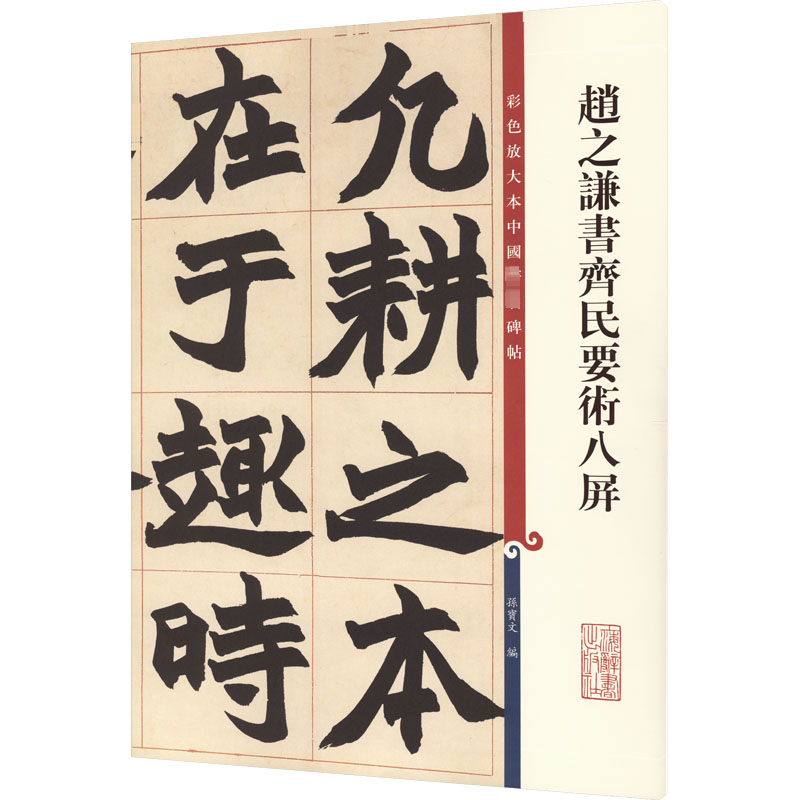 趙之謙書齊民要術八屏
上海辭書
出版社
彩色放大本中國
碑帖
孫寶文 編
凡耕之本
在于趣時